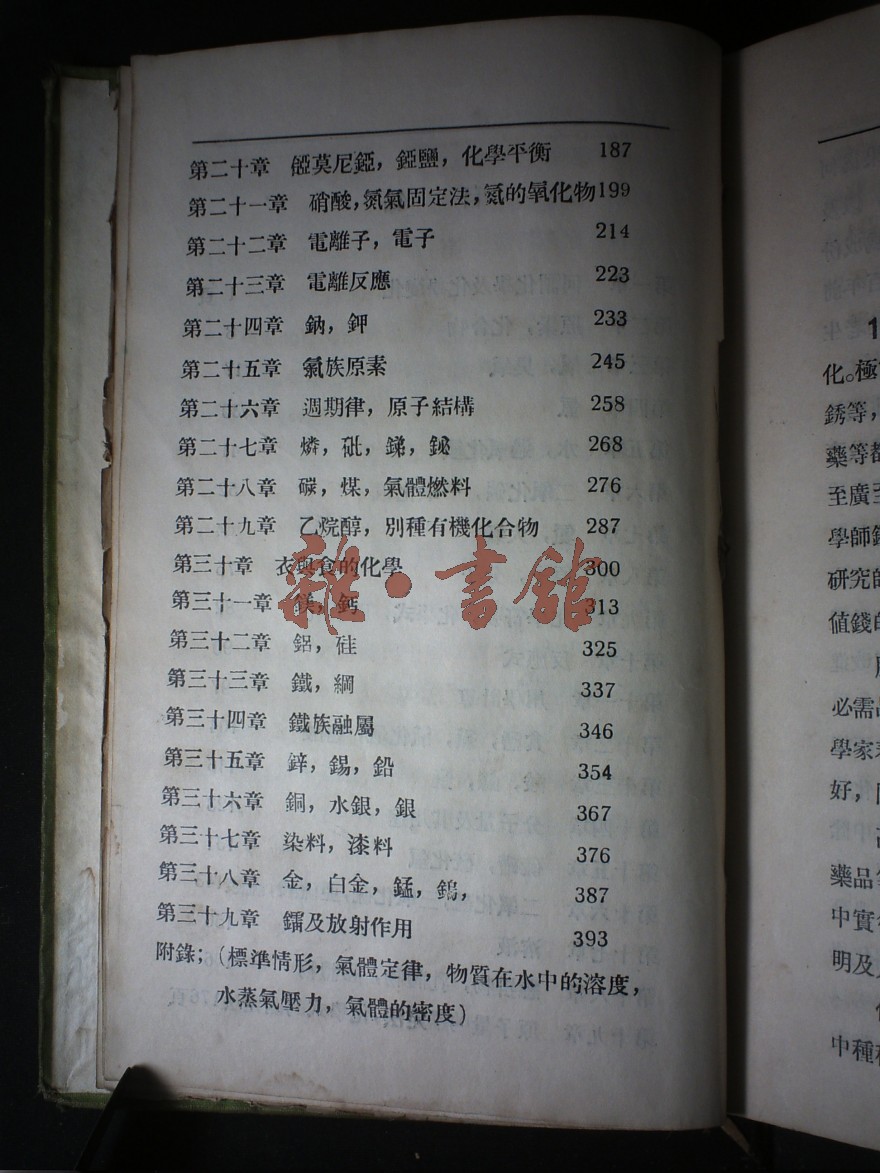 第二十章 䤃莫尼錏,錏鹽,化學平衡 187
第二十一章 硝酸,氮氣固定法,氮的氧化物199
第二十二章 電離子,電子 214
第二十三章 電離反應 223
第二十四章 鈉,鉀 233
第二十五章 氯族原素 245
第二十六章 週期律,原子結構 258
第二十七章 燐,砒,銻,鉍 268
第二十八章 碳,煤,氣體燃料 276
第二十九章 乙烷醇,別種有機化合物 287
第三十章 衣與食的化學 300
第三十一章 鎂,鈣 313
第三十二章 鋁,硅 325
第三十三章 鐵,鋼 337
第三十四章 鐵族融屬 346
第三十五章 鋅,錫,鉛 354
第三十六章 銅,水銀,銀 367
第三十七章 染料,漆料 376
第三十八章 金,白金,錳,鎢, 387
第三十九章 鐳及放射作用 393
附錄;(標準情形,氣體定律,物質在水中的溶度,
水蒸氣壓力,氣體的密度)
雜·書館
1
化。極
銹等,
藥等都
至廣至
學師
研究的
值錢的
必需
學家
好,
藥品
中實
明及
中種